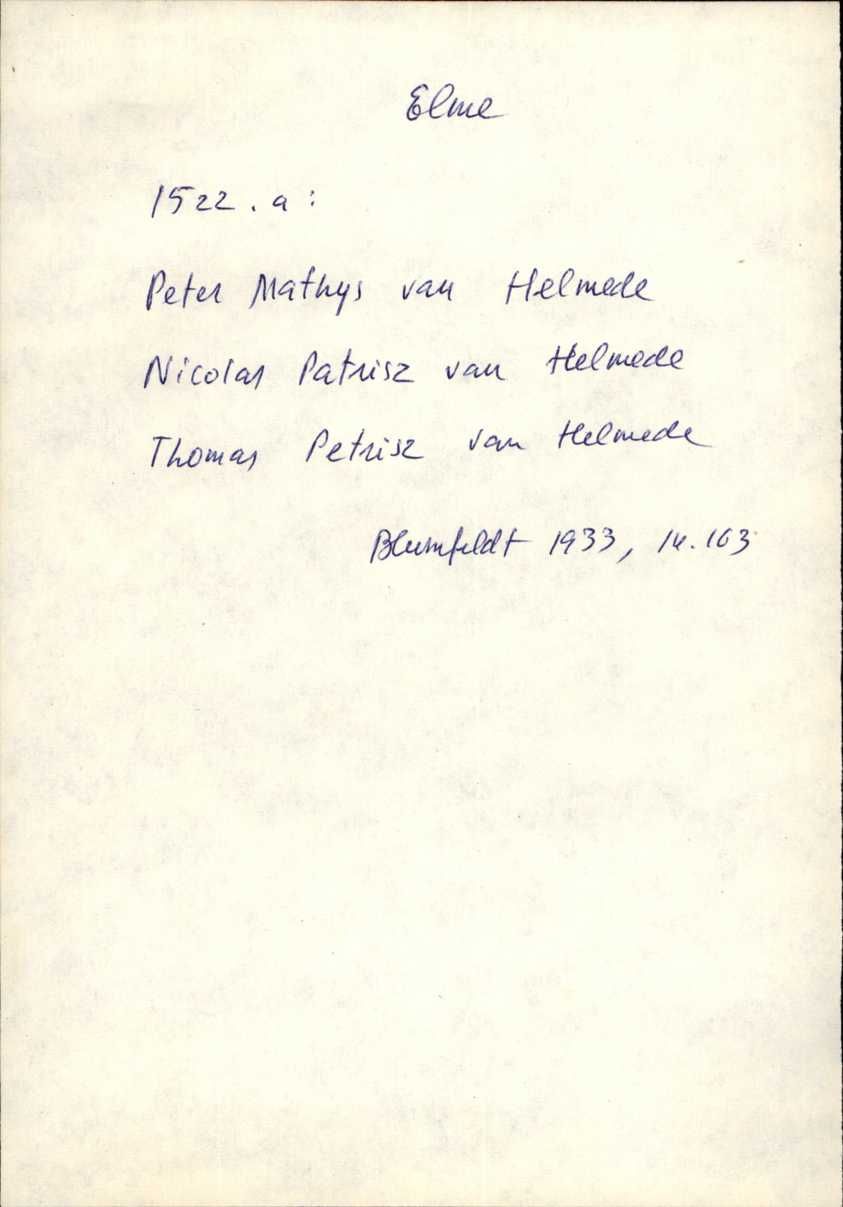 Elme
1522. a:
Peter Mathys van Helmede
Nicolas Patrisz van Helmede
Thomas Petrisz van Helmede
Blumfeldt 1933, lk. 163